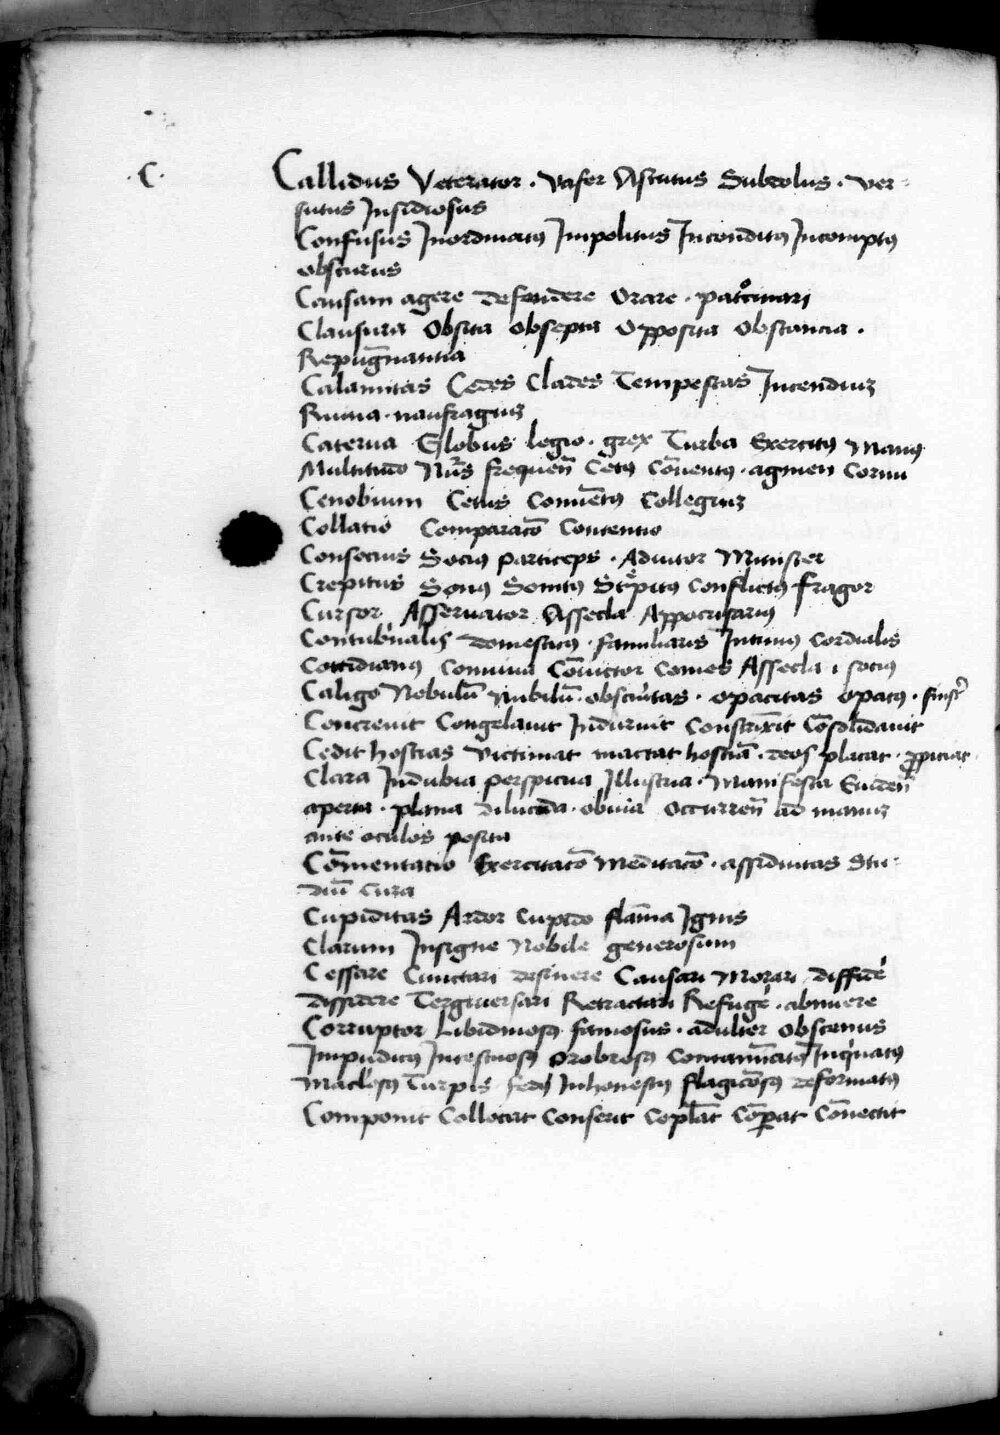 .C.
Callidus Veterator . vafer Astutus Subdolus . ver-
sutus Insidiosus
Confusus Inordinatꝰ Impolitus Inconditꝰ Incomptꝰ
obscurus
Causam agere defendere Orare . patͦcinari
Clausura Obsita obsepta Opposita Obstancia .
Repūgnantia
Calamitas Cedes Clades Tempestas Incendiuꝫ
Ruina . naufragiuꝫ
Caterva Globus legio . grex Turba Exercitꝰ Manꝰ
Multitudo Nūs frequen̄ Cetꝰ Cōuentꝰ . agmen Cornu
Cenobium Cetus Conuētꝰ Collegiuꝫ
Collatio Comparacō Contentio
Consocius Sociꝰ particeps . Adiutor Minister
Crepitus Sonꝰ Sonitꝰ Strepitꝰ Conflictꝰ fragor
Cursor Asseruator Assecla Appocrisariꝰ
Contubnalis domesticꝰ . familiaris Intimꝰ Cordialis
Cottidianꝰ Conuiua Cōuictor Comes Assecla i sociꝰ
Caligo Nebulū Nubilū . obscuritas . opacitas opacꝰ .
Concreuit Congelauit Induruit Constrīxit Cōsolidauit
Cedit hostias victimat mactat hostiā . deos placat . ꝓpiciat
Clara Indubia perspicua Illustria . Manifesta Euiden̄
aperta . plana dilucida . obuia Occurren̄ ad manuꝫ
ante oculos posita
Cōmentatio Exercitacō Meditacō . assiduitas Stu-
diū cura
Cupiditas Ardor Cupido flāma Ignis
Clarum Insigne Nobile generosum
Cessare Cunctari desinere Causari Morari diffide
dissidere Tergiuersari Retractari Refuge . abnuere
Corruptor Libidinosꝰ famosus . adulter obscenus
Impudicꝰ Incestuosꝰ probrosꝰ Contamīatꝰ Inquinatꝰ
Maclosꝰ Turpis fedꝰ Inhonestꝰ flagicōsꝰ deformatꝰ
Componit Collocat Conserit Coplat Cōpat Cōnectit